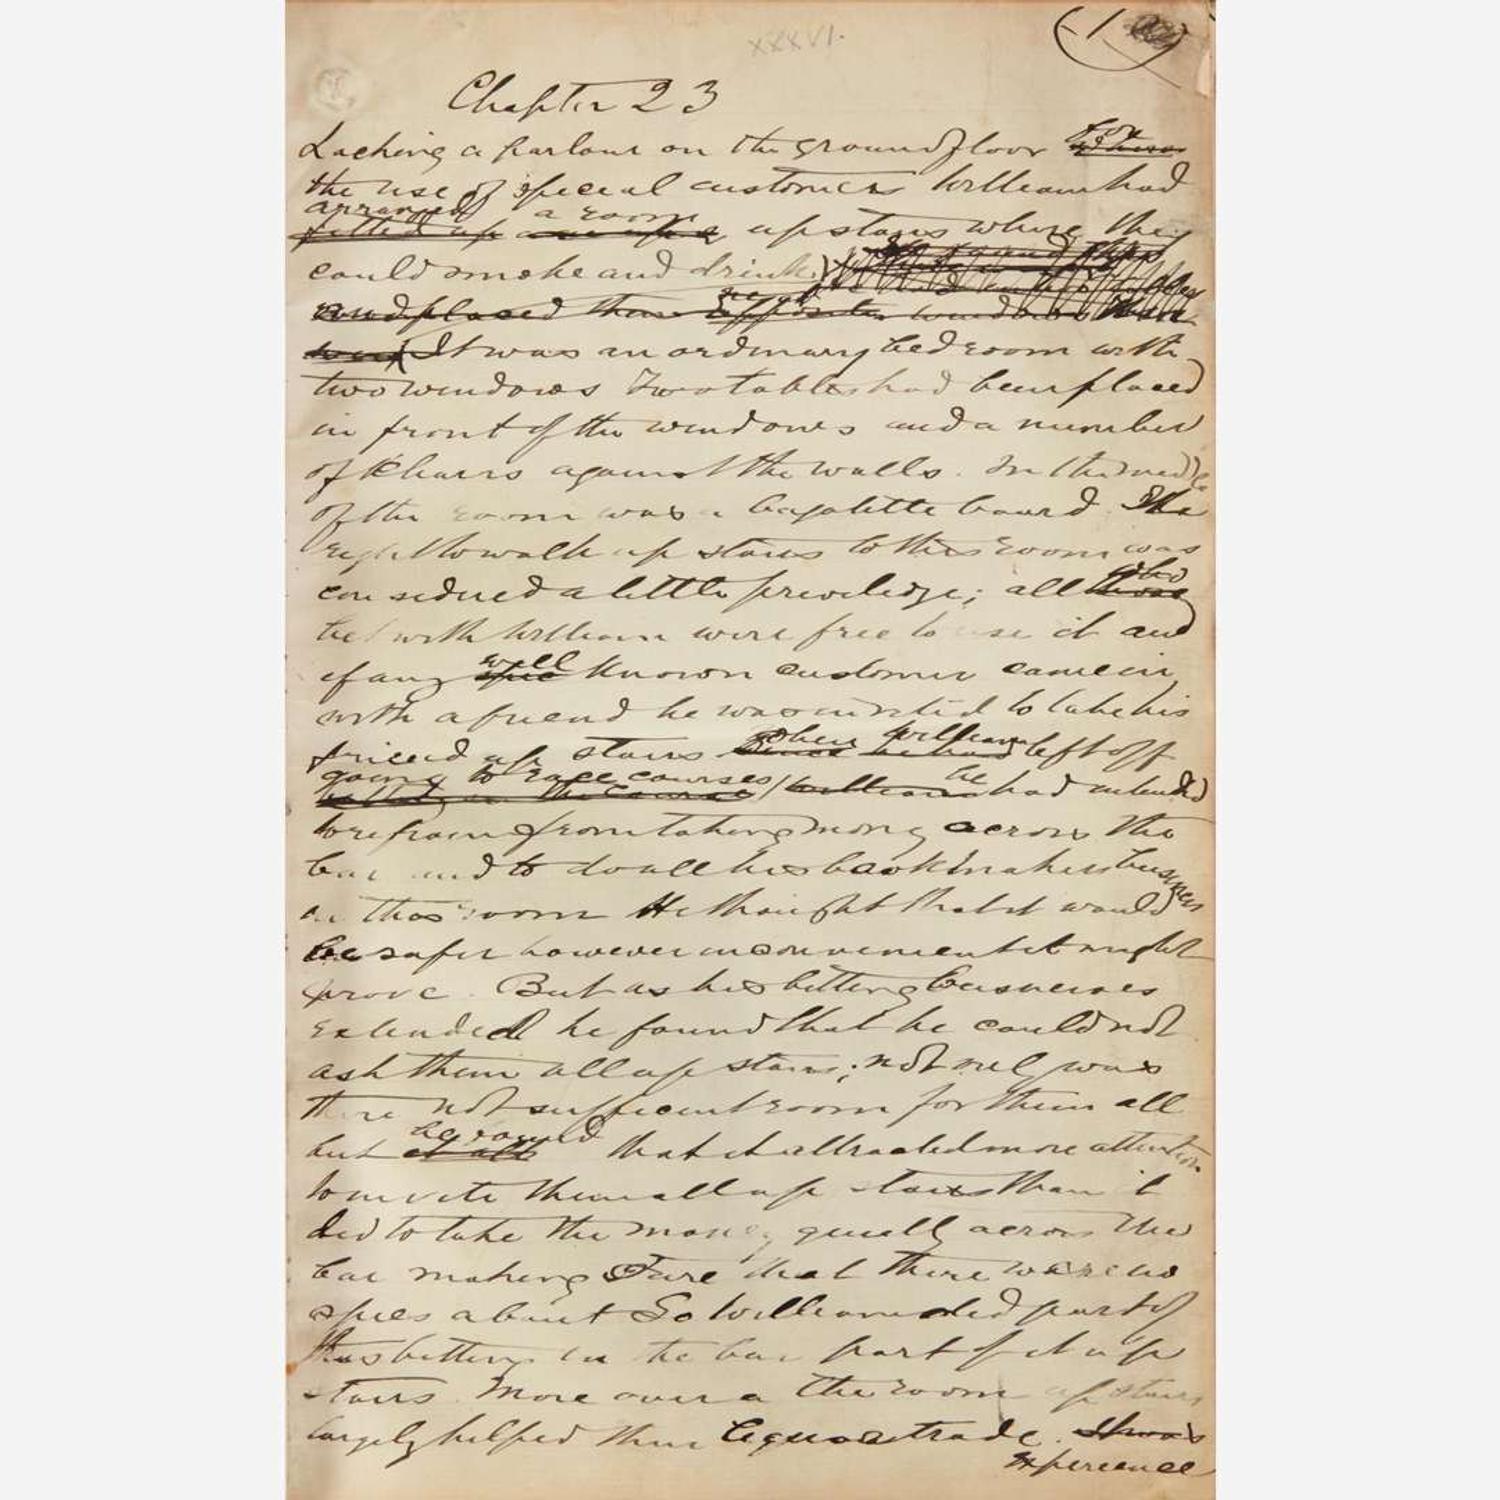 XXXVI.
(-1
Chapter 23
Lacking a parlour on the ground floor for
the use of special customers William had
arranged a room
fitted up upstairs where they
could smoke and drink.
and placed them opposite windows
It was an ordinary bedroom with
two windows Two tables had been placed
in front of the windows and a number
of chairs against the walls. In the middle
of the room was a bagatelle board. The
right to walk up stairs to this room was
considered a little priviledge; all who
bet with William were free to use it and
if any well known customer came in
with a friend he was invited to take his
friend up stairs when William left off
going to race courses he had intended
to refrain from taking money across the
bar and to do all his bookmakers business
in this room He thought that it would
be safer however inconvenient it might
prove. But as his betting businesses
extended he found that he could not
ask them all up stairs; not only was
there not sufficient room for them all
but he found that it attracted more attention
to invite them all up stairs than it
did to take the money quietly across the
bar making sure that there were no
spies about So William did part of
his betting in the bar part of it up
stairs. More over a the room up stairs
largely helped their legitimate trade.
experience